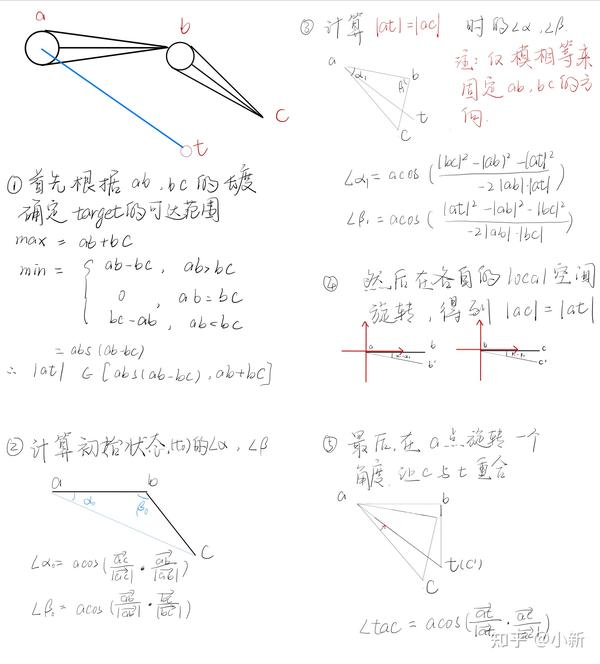 a
b
c
t
① 首先根据 ab, bc 的长度
确定target的可达范围
max = ab+bc
min = { ab-bc , ab>bc
0 , ab=bc
bc-ab , ab<bc
= abs(ab-bc)
∴ |at| ∈ [abs(ab-bc), ab+bc]
② 计算初始状态(t0)的∠α, ∠β
a
b
α₀
β₀
C
∠α₀= acos(ac/|ac| · ab/|ab|)
∠β₀= acos(
③ 计算 |at|=|ac| 时的∠α,∠β.
注: 仅模相等来
固定ab,bc的方
向.
a
α₁
b
β₁
t
C
∠α₁= acos(|bc|²-|ab|²-|at|²/-2|ab|·|at|)
∠β₁= acos(|at|²-|ab|²-|bc|²/-2|ab|·|bc|)
④ 然后在各自的local空间
旋转, 得到 |ac|=|at|
a
b
b'
b
c
c'
⑤ 最后,在a点旋转一个
角度,让C与t重合
a
b
t(c')
C
∠tac = acos(at/|at| · ac/|ac|)
知乎 @小新